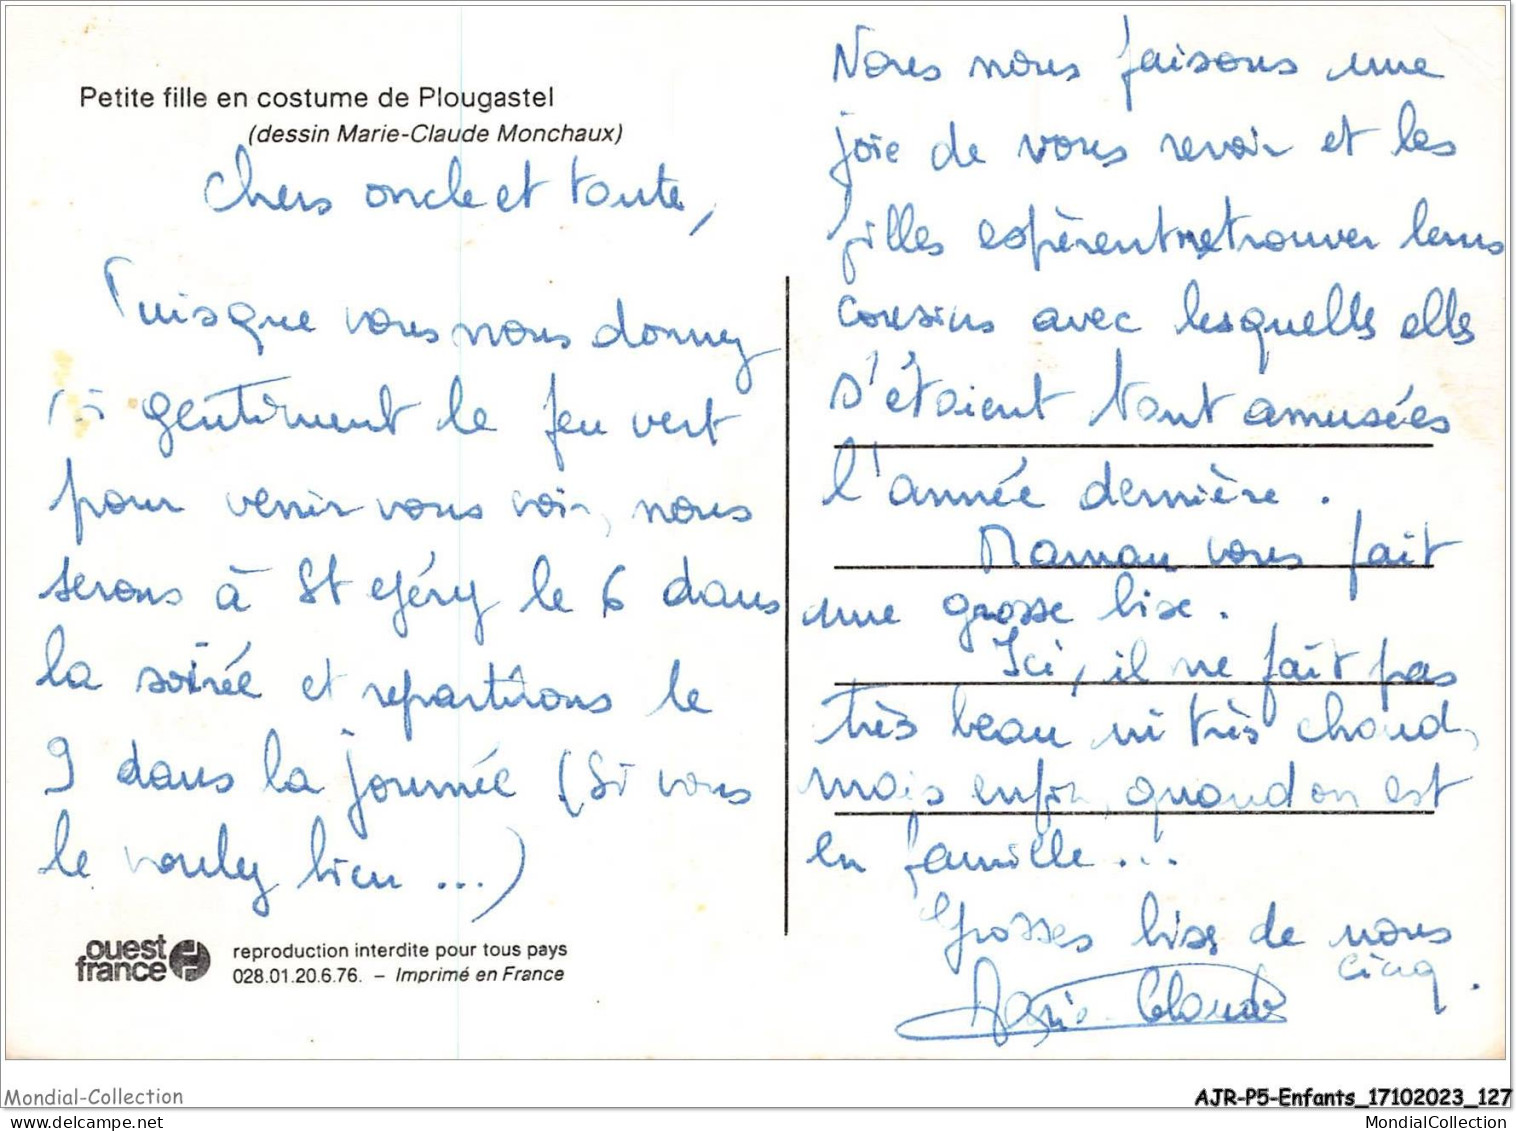 Petite fille en costume de Plougastel
(dessin Marie-Claude Monchaux)
Chers oncle et tante,
Puisque vous nous donnez
si gentiment le feu vert
pour venir vous voir, nous
serons à St Géry le 6 dans
la soirée et repartirons le
9 dans la journée (si vous
le voulez bien ...)
ouest
france
reproduction interdite pour tous pays
028.01.20.6.76. – Imprimé en France
Nous nous faisons une
joie de vous revoir et les
filles espèrent retrouver leurs
cousins avec lesquelles elles
s'étaient tant amusées
l'année dernière.
Maman vous fait
une grosse bise.
Ici, il ne fait pas
très beau ni très chaud,
mais enfin, quand on est
en famille...
Grosses bises de nous
cinq.
Marie-Claude
Mondial-Collection
AJR-P5-Enfants_17102023_127
MondialCollection